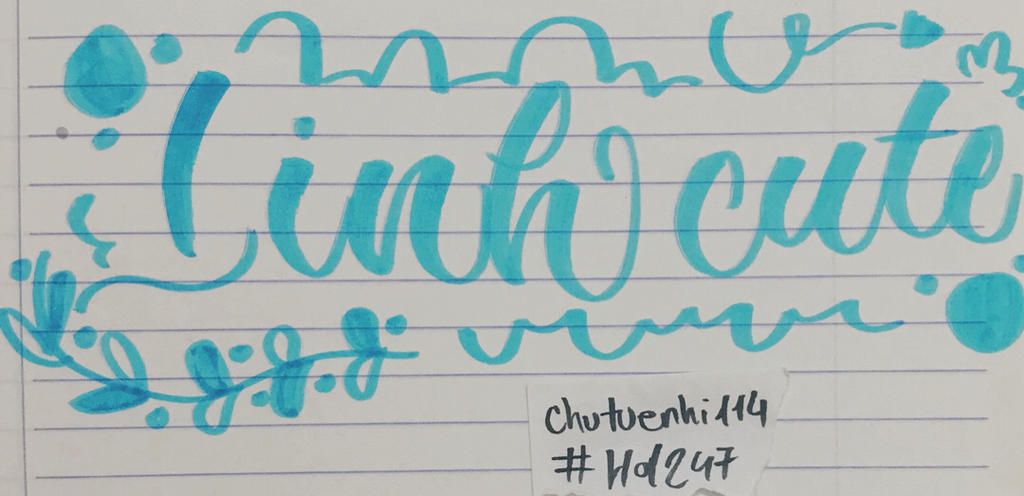 Linh cute
chutuenhi114
#Hd247